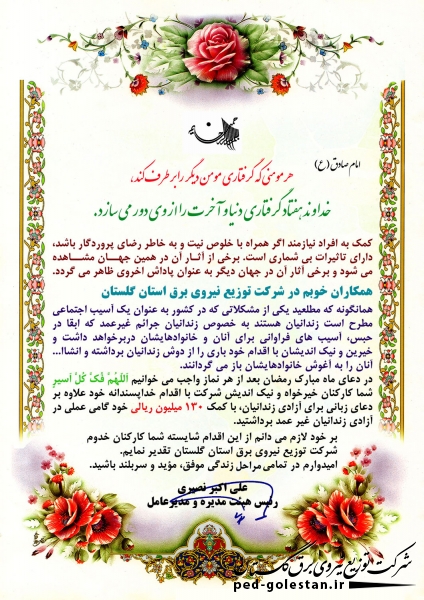 امام صادق (ع)
هر مومنی که گرفتاری مومن دیگر را برطرف کند،
خداوند هفتاد گرفتاری دنیا و آخرت را از وی دور می سازد.
کمک به افراد نیازمند اگر همراه با خلوص نیت و به خاطر رضای پروردگار باشد،
دارای تاثیرات بی شماری است. برخی از آثار آن در همین جهان مشاهده
می شود و برخی آثار آن در جهان دیگر به عنوان پاداش اخروی ظاهر می گردد.
همکاران خوبم در شرکت توزیع نیروی برق استان گلستان
همانگونه که مطلعید یکی از مشکلاتی که در کشور به عنوان یک آسیب اجتماعی
مطرح است زندانیان هستند به خصوص زندانیان جرائم غیرعمد که ابقا در
حبس، آسیب های فراوانی برای آنان و خانوادهایشان دربرخواهد داشت و
خیرین و نیک اندیشان با اقدام خود باری را از دوش زندانیان برداشته و انشاا...
آنان را به آغوش خانوادهایشان باز می گردانند.
در دعای ماه مبارک رمضان بعد از هر نماز واجب می خوانیم اَللّهُمَّ فُکَّ کُلَّ اَسیرٍ
شما کارکنان خیرخواه و نیک اندیش شرکت با اقدام خداپسندانه خود علاوه بر
دعای زبانی برای آزادی زندانیان، با کمک ۱۳۰ میلیون ریالی خود گامی عملی در
آزادی زندانیان غیر عمد برداشتید.
بر خود لازم می دانم از این اقدام شایسته شما کارکنان خدوم
شرکت توزیع نیروی برق استان گلستان تقدیر نمایم.
امیدوارم در تمامی مراحل زندگی موفق، مؤید و سربلند باشید.
علی اکبر نصیری
رئیس هیئت مدیره و مدیرعامل
شرکت توزیع نیروی برق
ped-golestan.ir